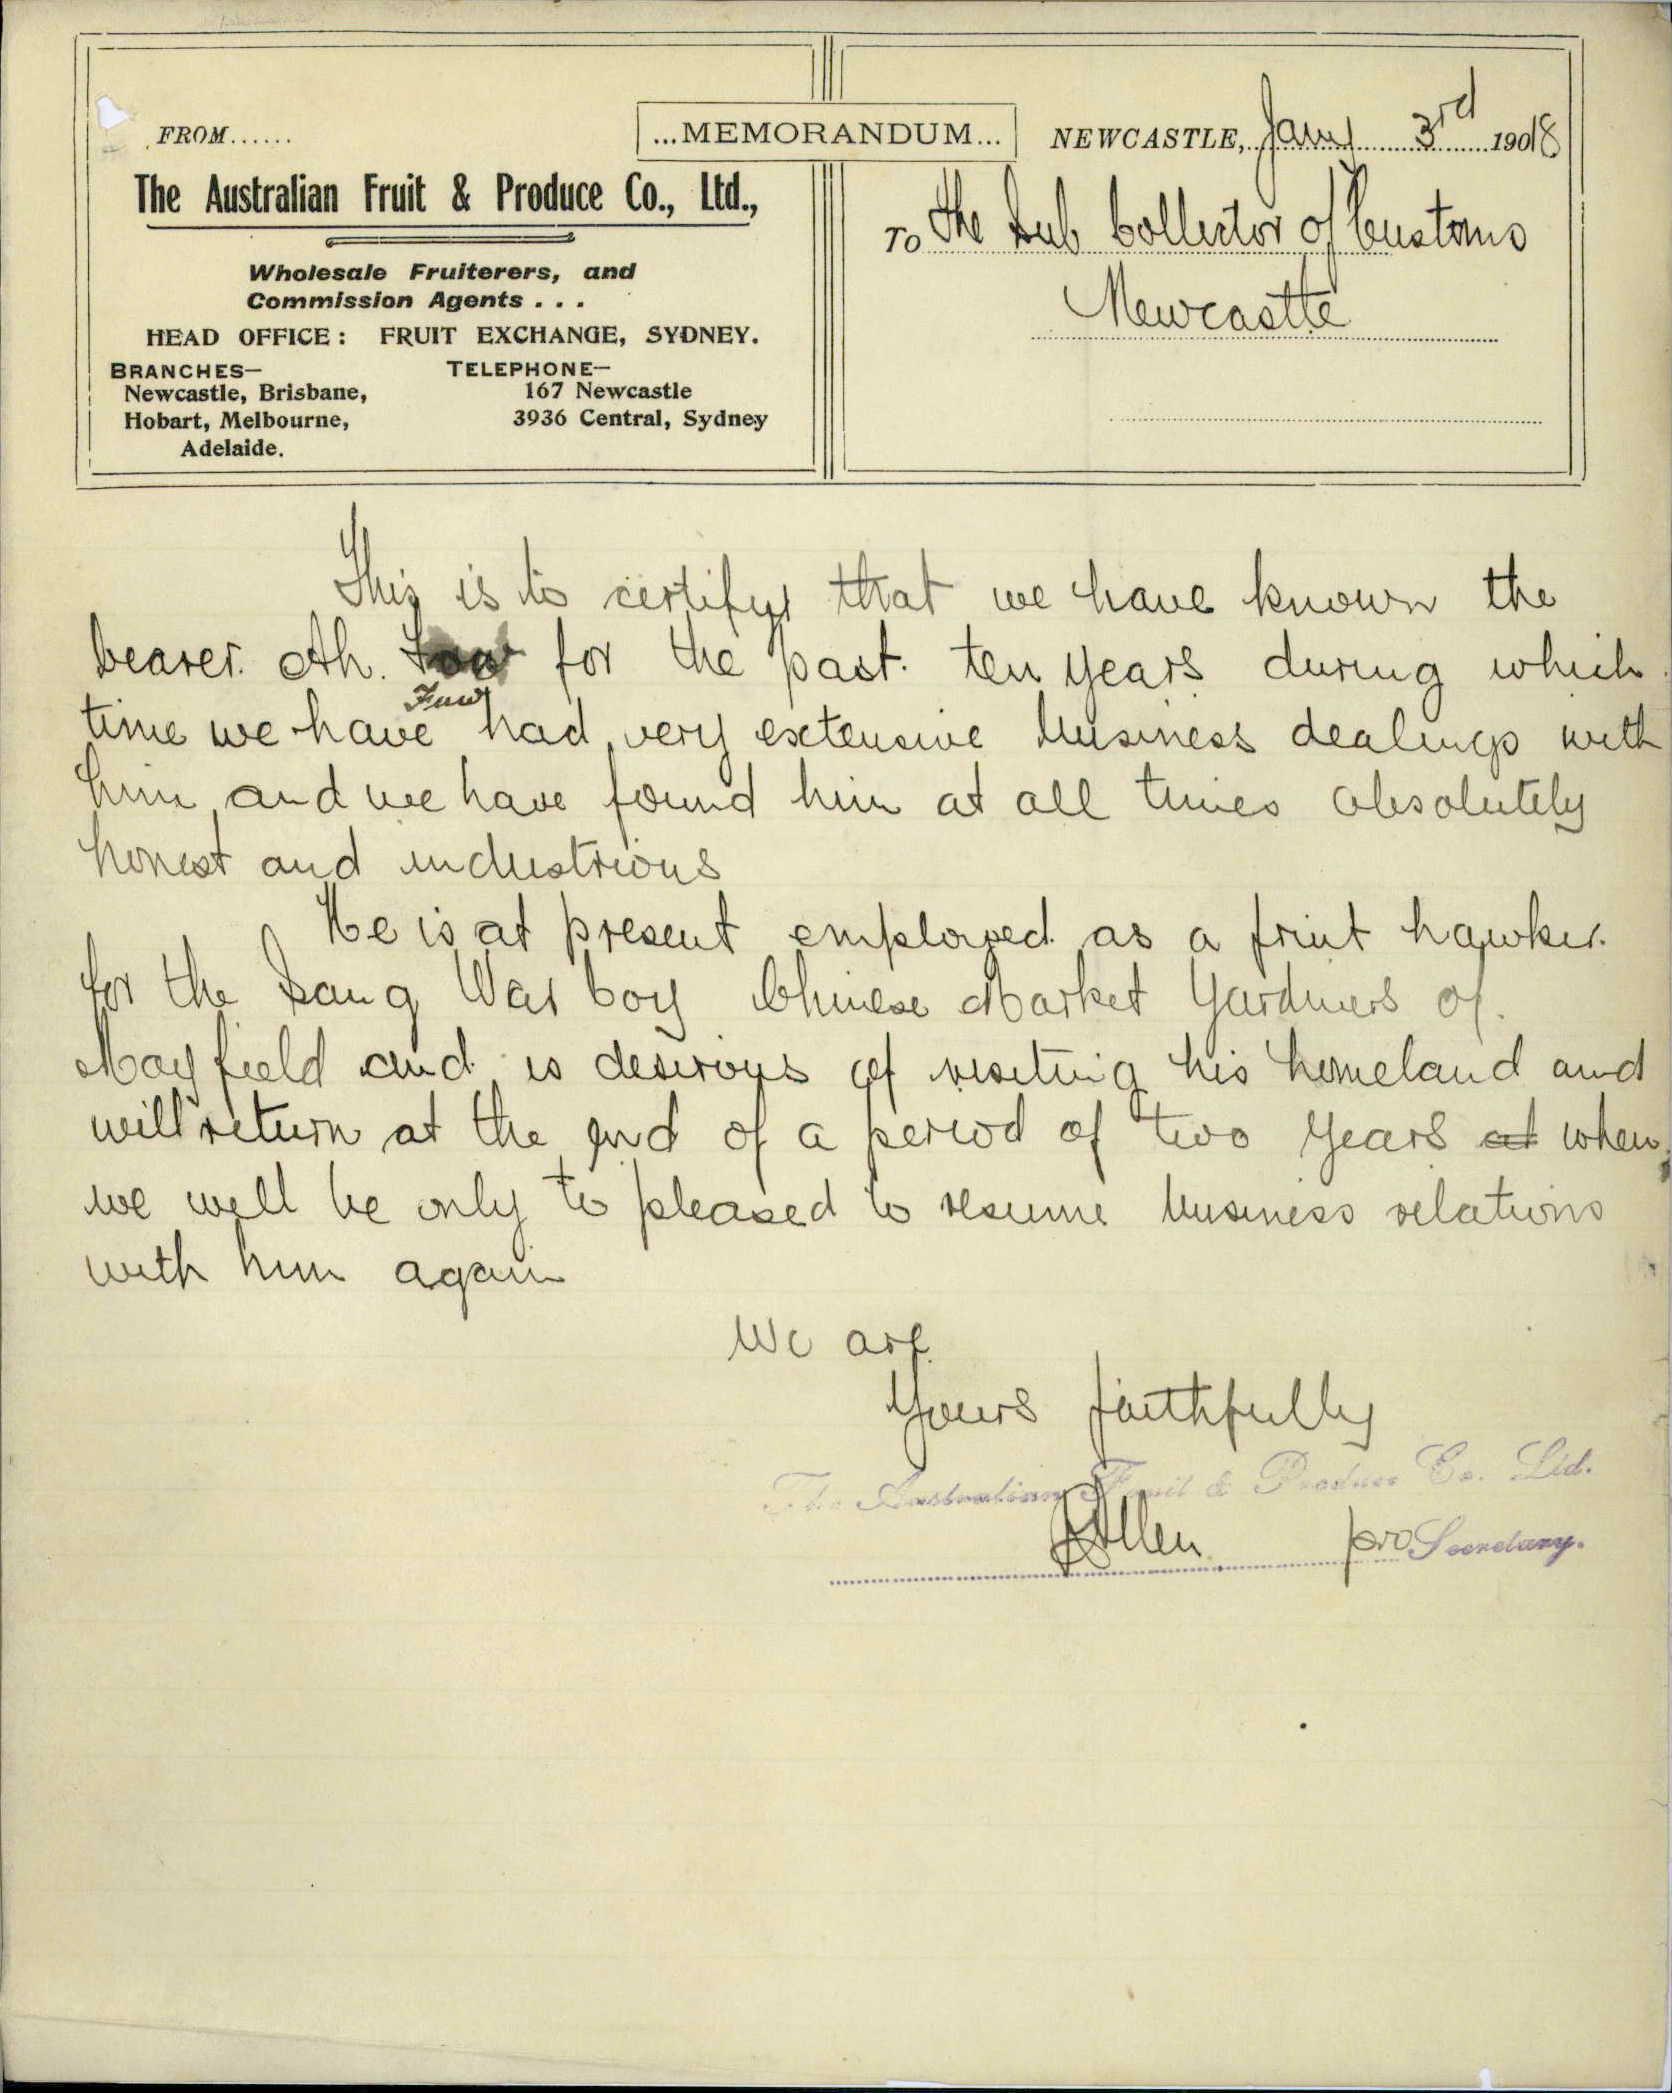 FROM......
...MEMORANDUM...
NEWCASTLE, Jany 3rd 1918
The Australian Fruit & Produce Co., Ltd.,
Wholesale Fruiterers, and
Commission Agents . . .
HEAD OFFICE : FRUIT EXCHANGE, SYDNEY.
BRANCHES—
Newcastle, Brisbane,
Hobart, Melbourne,
Adelaide.
TELEPHONE—
167 Newcastle
3936 Central, Sydney
TO the Sub Collector of Customs
Newcastle
This is to certify that we have known the
bearer. Ah. for the past. ten years during which
Fuw
time we have had very extensive business dealings with
him and we have found him at all times absolutely
honest and industrious
He is at present employed as a friut hawker.
for the Sang War Coy Chinese Market Gardners of.
Mayfield and is desirous of visiting his homeland and
will return at the end of a period of two years at when
we will be only to pleased to resume business relations
with him again
We are
Yours faithfully
The Australian Fruit & Produce Co. Ltd.
Allen pro Secretary.